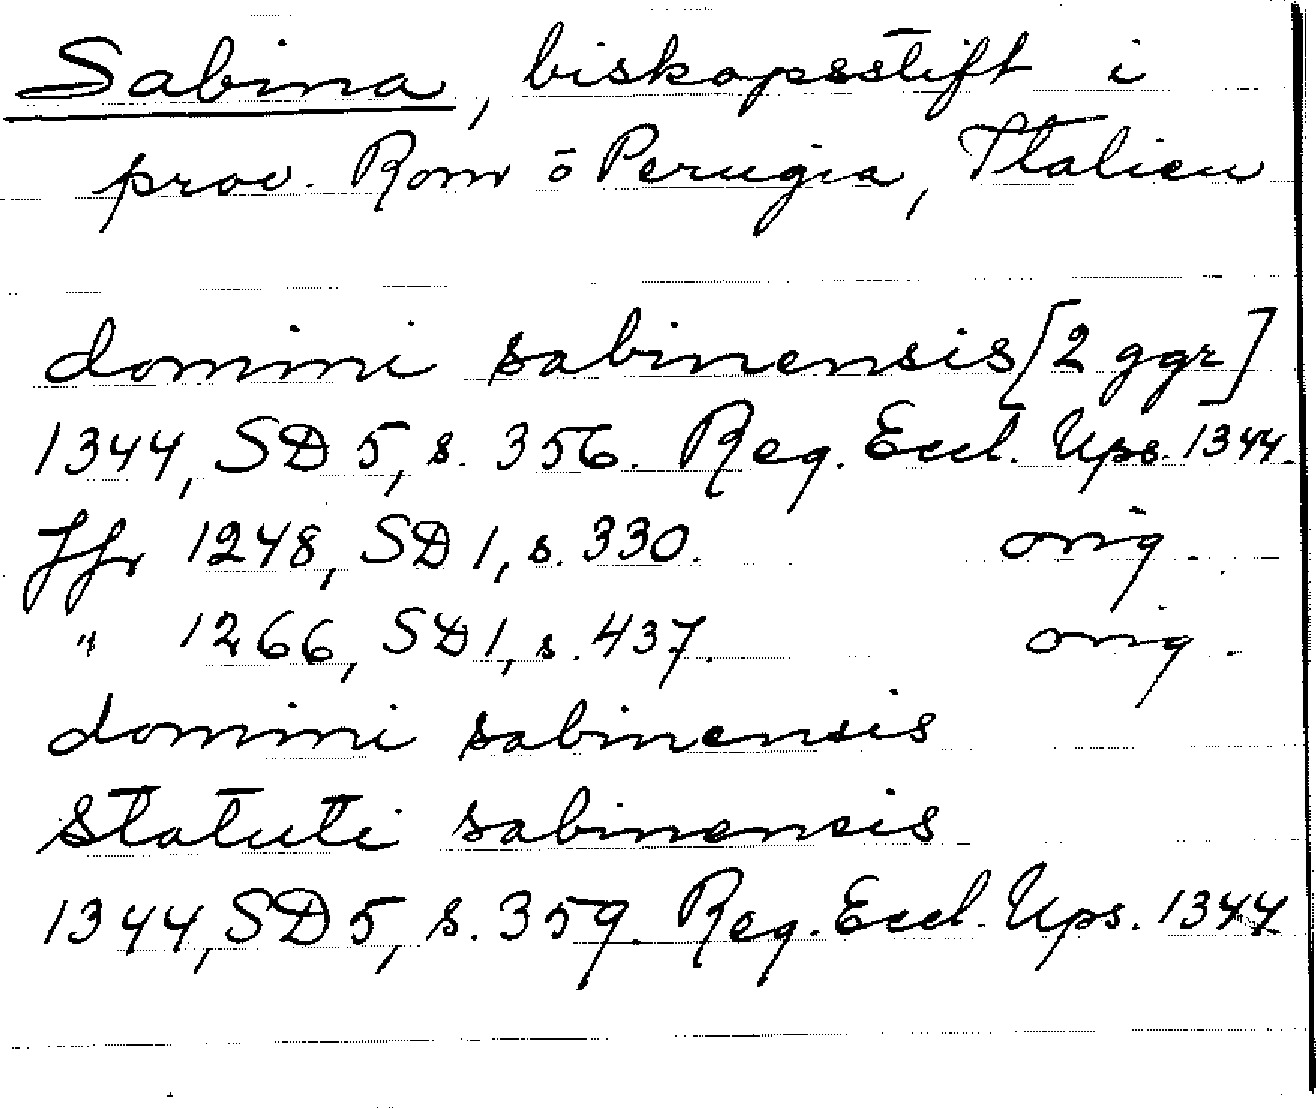 Sabina, biskopsstift i
prov. Rom ō Perugia, Italien
domini sabinensis [2 ggr]
1344, SD 5, s. 356. Reg. Eccl. Ups. 1344.
Jfr 1248, SD 1, s. 330. orig.
" 1266, SD 1, s. 437. orig.
domini sabinensis
statuti sabinensis
1344, SD 5, s. 359. Reg. Eccl. Ups. 1344